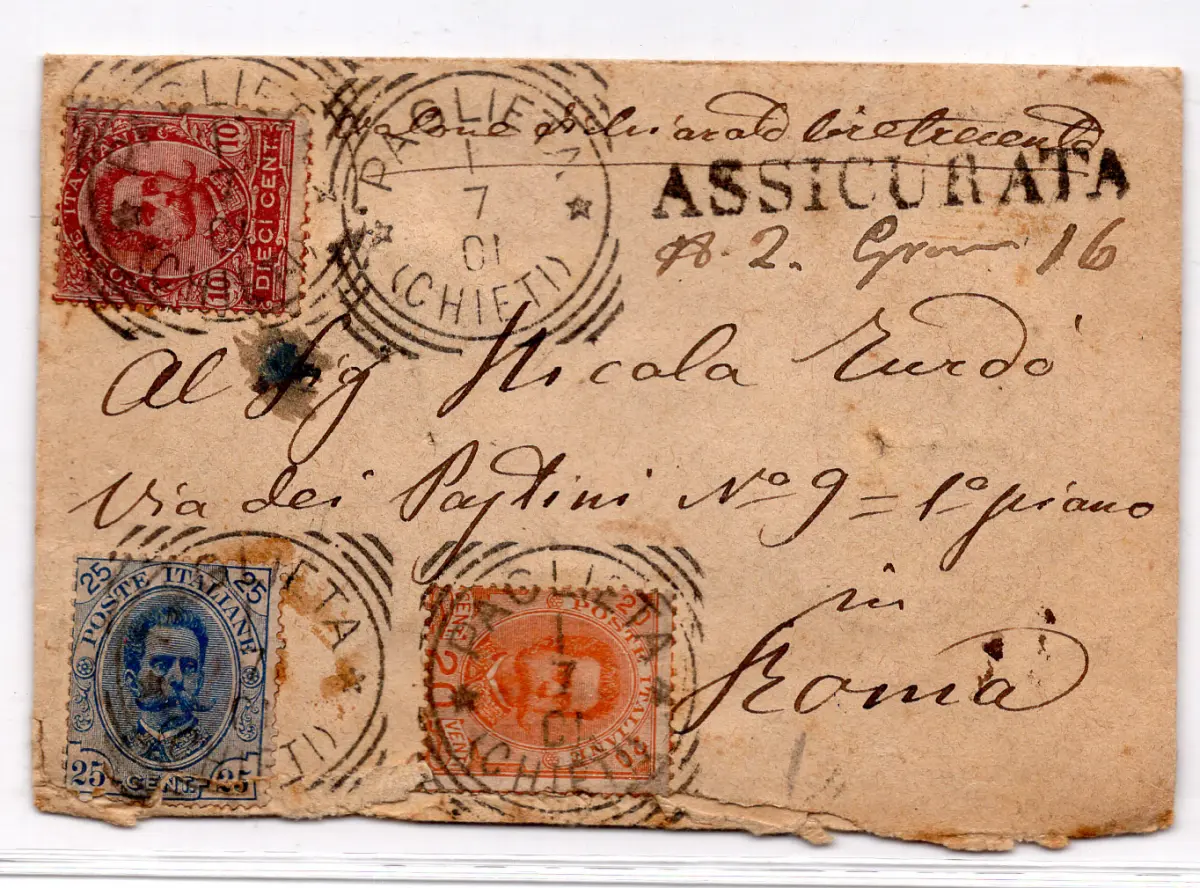 Valore dichiarato lire trecento
ASSICURATA
N. 2. Grammi 16
PAGLIETA
1
7
01
(CHIETI)
POSTE ITALIANE
10
DIECI CENT.
10
Al Sig Nicola Turdò
Via dei Pastini Nº 9 = 1º piano
in
Roma
PAGLIETA
(CHIETI)
25 25
POSTE ITALIANE
25 CENT. 25
PAGLIETA
1
7
01
(CHIETI)
20
POSTE ITALIANE
CENT 20 VENTI
20